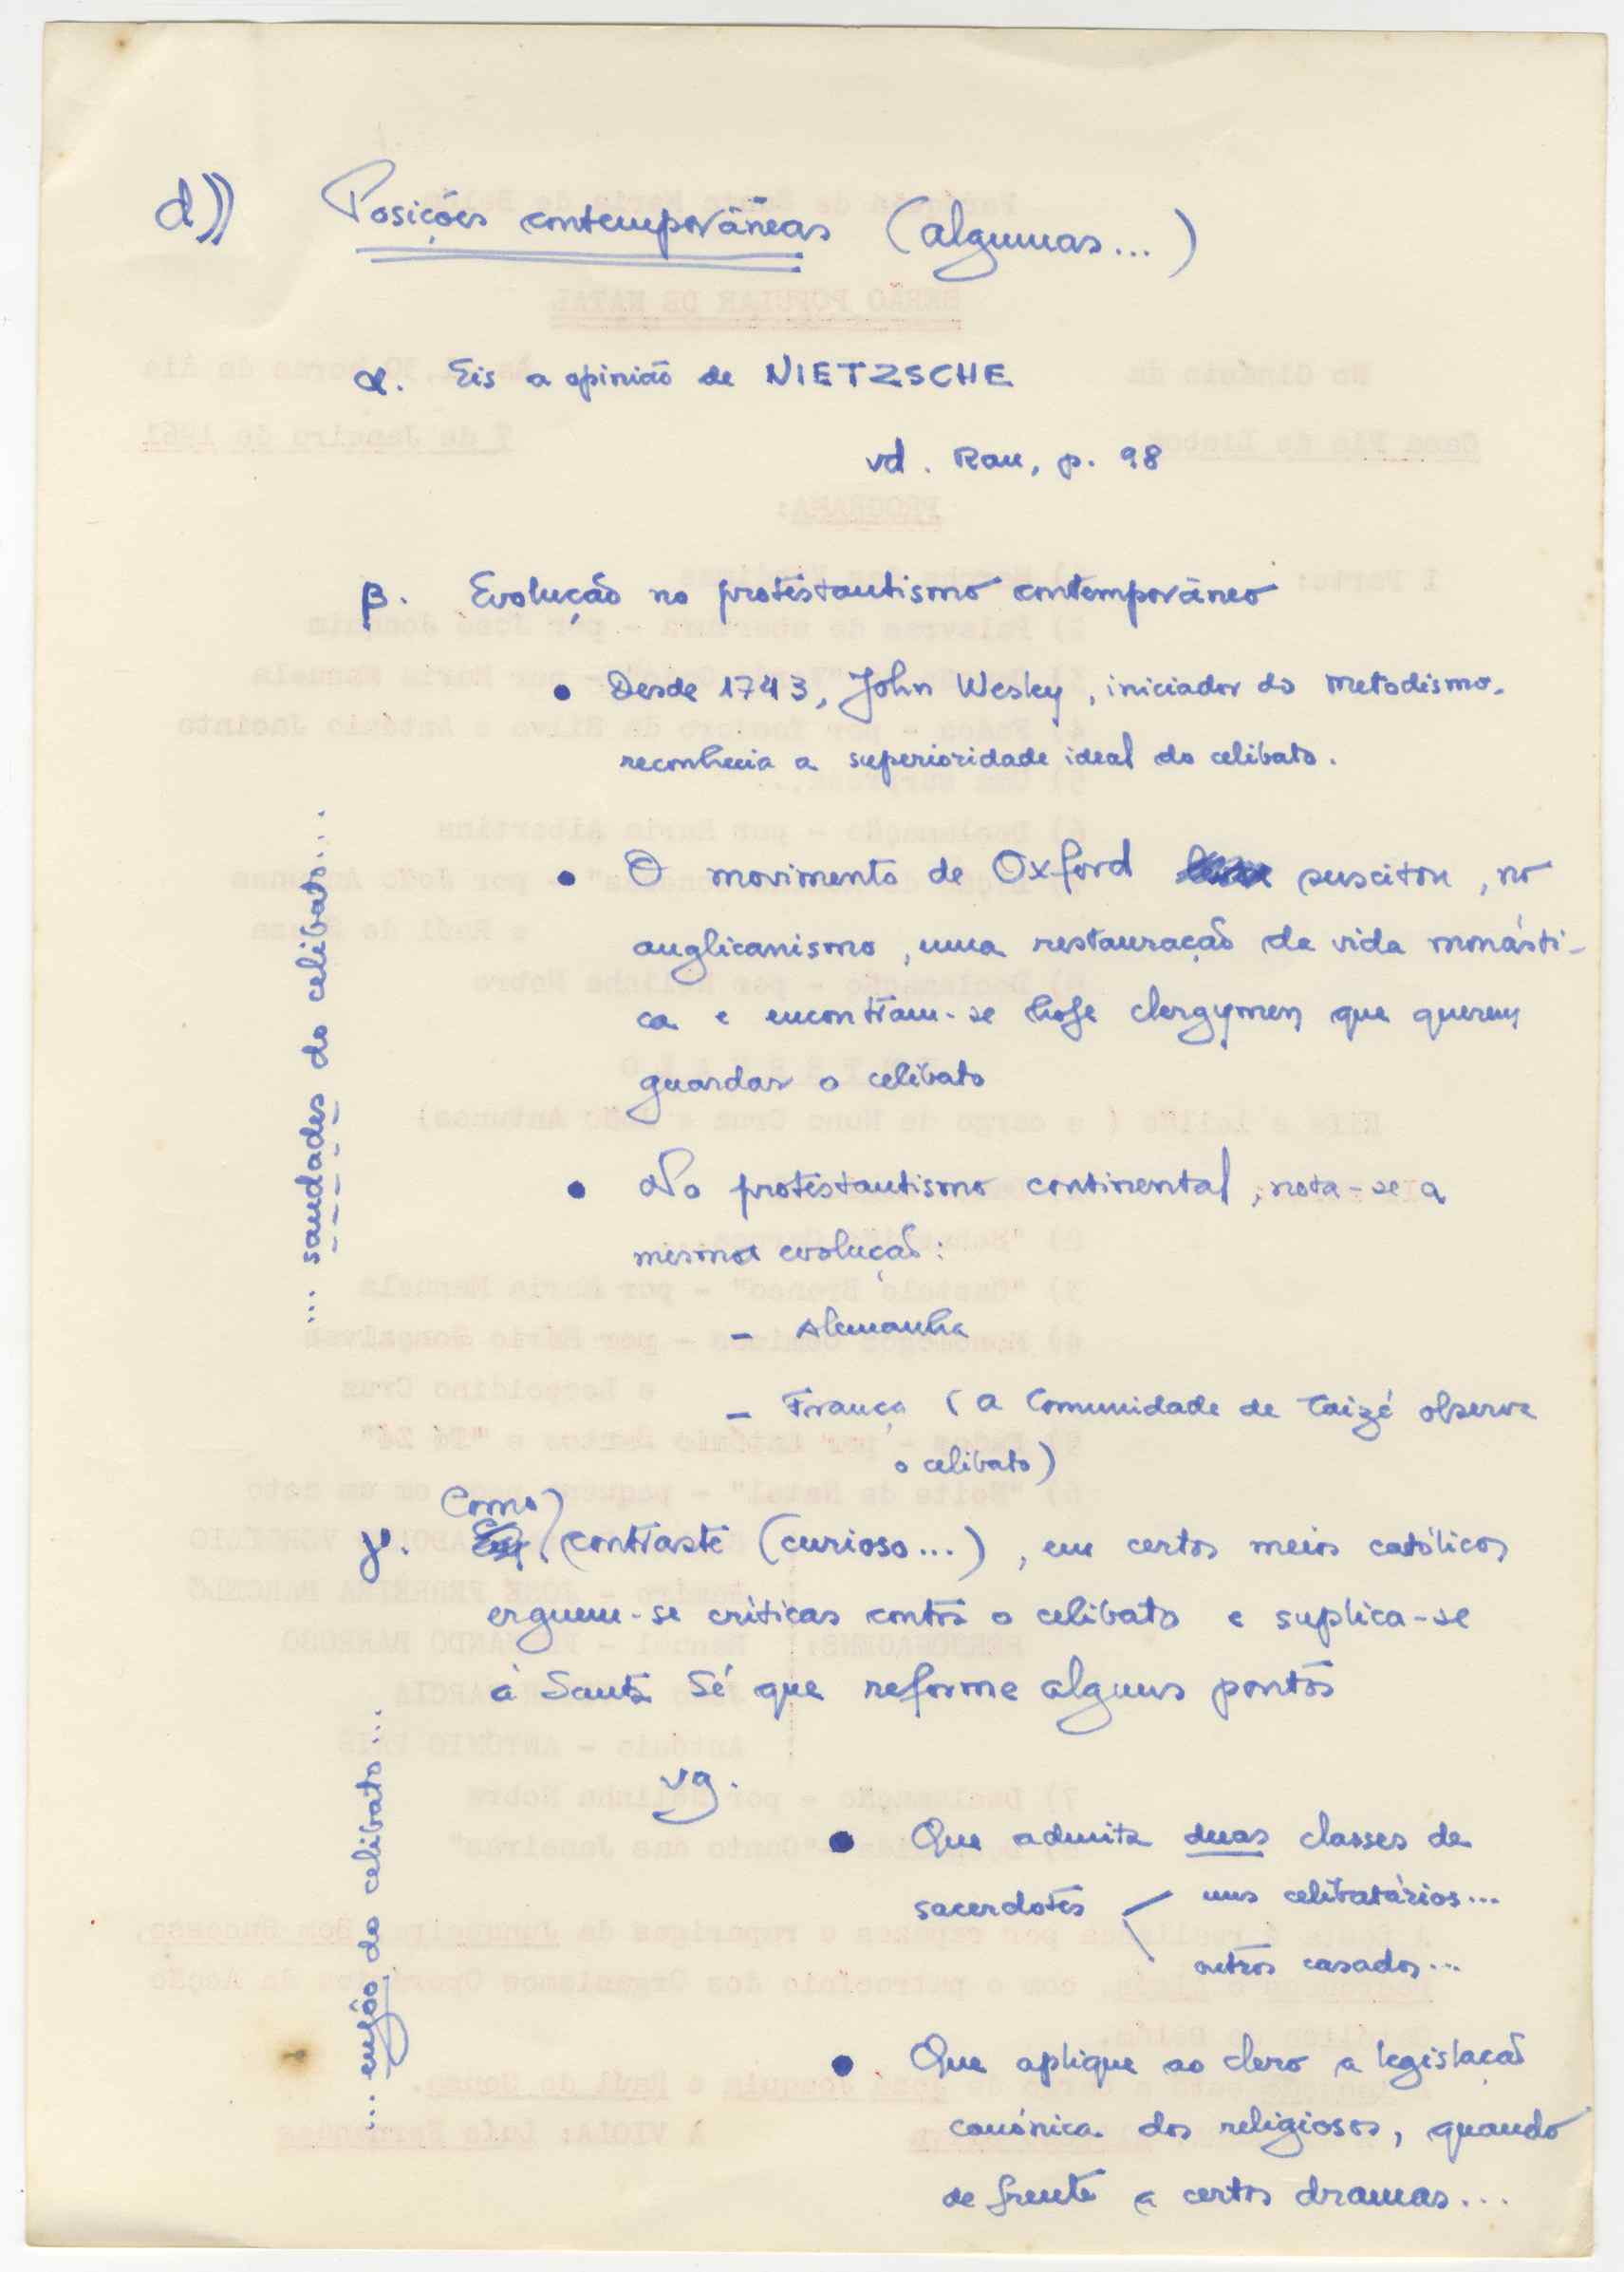 d)) Posições contemporâneas (algumas...)
α. Eis a opinião de NIETZSCHE
vd. Rau, p. 98
β. Evolução no protestantismo contemporâneo
• Desde 1743, John Wesley, iniciador do metodismo,
reconhecia a superioridade ideal do celibato.
• O movimento de Oxford suscitou, no
anglicanismo, uma restauração da vida monásti-
ca e encontram-se hoje clergymen que querem
guardar o celibato
• No protestantismo continental, nota-se a
mesma evolução:
- Alemanha
- França (a Comunidade de Taizé observa
o celibato)
... saudades do celibato...
γ. Como contraste (curioso...), em certos meios católicos
erguem-se críticas contra o celibato e suplica-se
à Santa Sé que reforme alguns pontos
vg.
• Que admita duas classes de
sacerdotes uns celibatários...
outros casados...
• Que aplique ao clero a legislação
canónica dos religiosos, quando
de frente a certos dramas...
... enjôo do celibato...